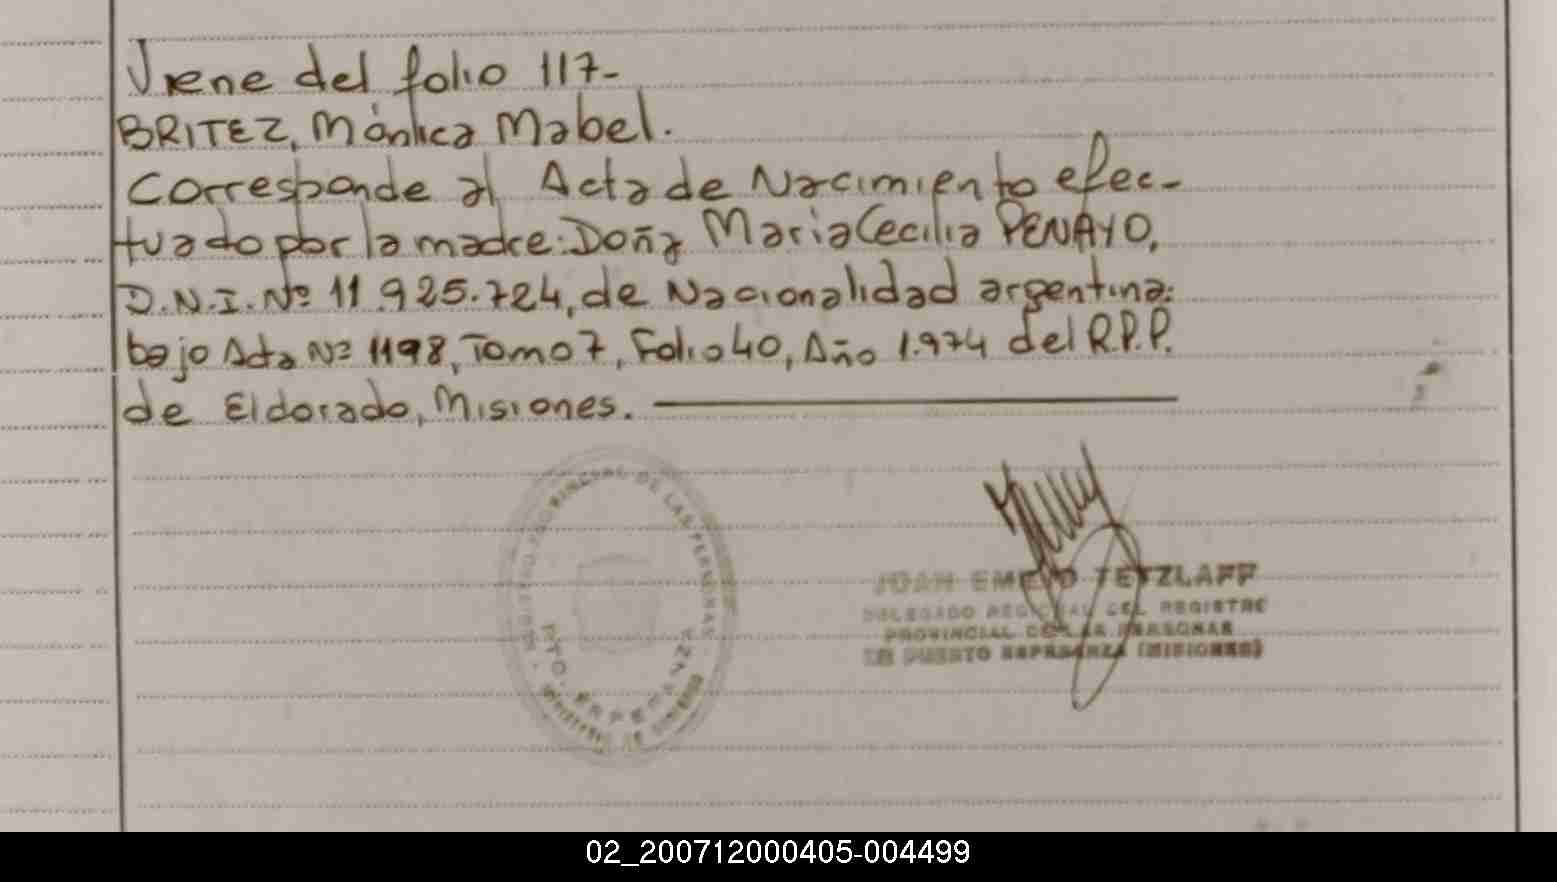 Viene del folio 117-
BRITEZ, Mónica Mabel.
Corresponde al Acta de Nacimiento efec-
tuado por la madre: Doña Maria Cecilia PENAYO,
D.N.I. Nº 11.925.724, de Nacionalidad argentina:
bajo Acta Nº 1198, Tomo 7, Folio 40, Año 1.974 del R.P.P.
de Eldorado, Misiones.
PROVINCIAL DE LAS PERSONAS
PTO. ESPERANZA
TETZLAFF
DELEGADO REGIONAL DEL REGISTRO
PROVINCIAL DE LAS PERSONAS
EN PUERTO ESPERANZA (MISIONES)
02_200712000405-004499